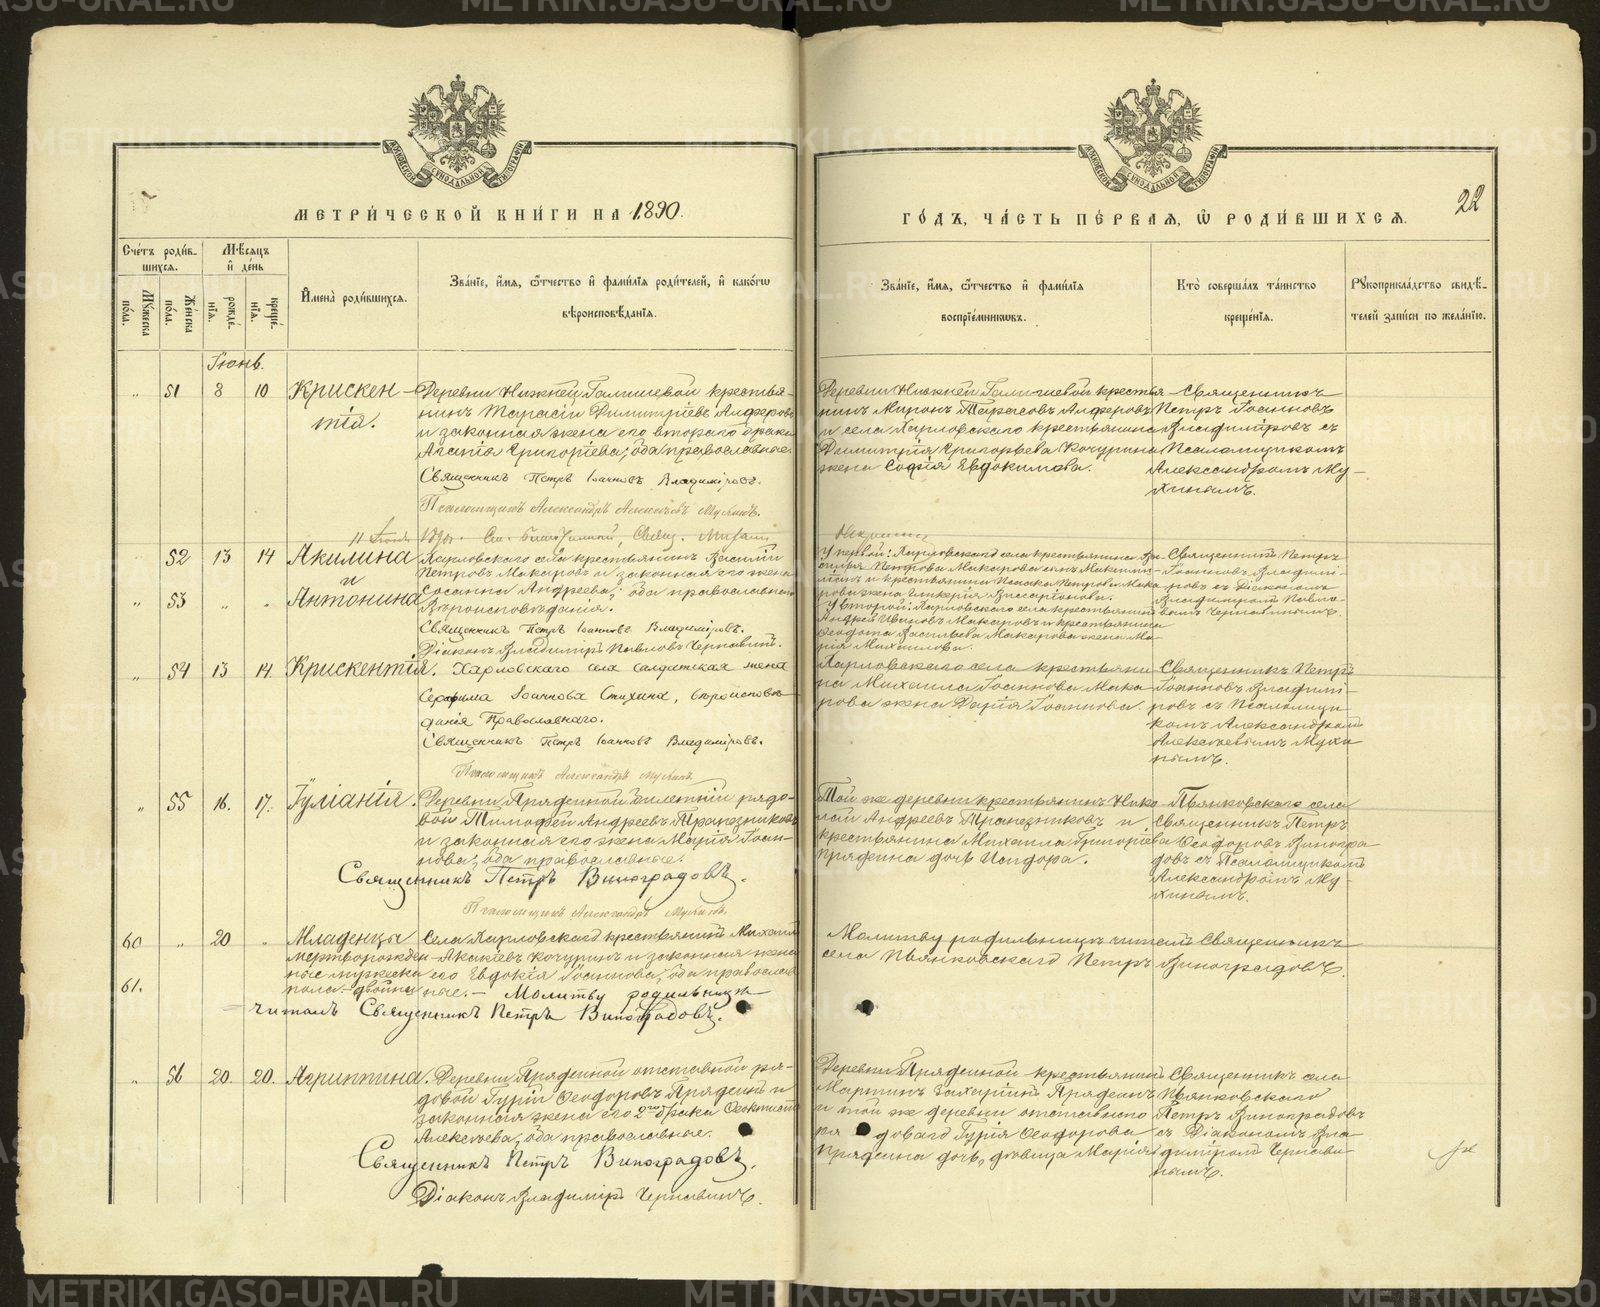 МЕТРИ́ЧЕСКОЙ КНИ́ГИ НА 1890.
ГО́ДЪ, ЧА́СТЬ ПЕ́РВАЯ, Ѿ РОДИ́ВШИХСЯ.
22
Сче́тъ роди́в-
шихся.
Мѣсяцъ
и҆ де́нь
Му́жеска
по́ла.
Же́нска
по́ла.
рожде́-
нїѧ.
креще́-
нїѧ.
И҆мена̀ роди́вшихся.
Зва́нїе, и҆́мя, ѻ҆́тчество и҆ фами́лїѧ роди́телей, и҆ како́гѡ
вѣроисповѣ́данїѧ.
Зва́нїе, и҆́мя, ѻ҆́тчество и҆ фами́лїѧ
воспрїе́мникѡвъ.
Кто̀ соверша́лъ та́инство
креще́нїѧ.
Рꙋкоприкла́дство свидѣ́-
телей за́писи по жела́нїю.
Іюнь.
„ 51 8 10 Крискен-
тія.
Деревни Нижней Галишевой крестья-
нинъ Тарасій Димитріевъ Алферовъ
и законная жена его втораго брака
Агапія Григоріева; оба православные.
Священникъ Петръ Іоанновъ Владиміровъ.
Псаломщикъ Александръ Алексѣевъ Мухинъ.
Деревни Нижней Галишевой крестья-
нинъ Миронъ Тарасовъ Алферовъ
и села Харловскаго крестьянина
Димитрія Григорьева Кочурина
жена Софія Евдокимова.
Священникъ
Петръ Іоанновъ
Владиміровъ съ
Псаломщикомъ
Александромъ Му-
хинымъ.
„ 52 13 14 Акилина
и
„ 53 „ „ Антонина
Харловскаго села крестьянинъ Василій
Петровъ Макаровъ и законная его жена
Сосанна Андреева; оба православнаго
Вѣроисповѣданія.
Священникъ Петръ Іоанновъ Владиміровъ.
Діаконъ Владиміръ Павловъ Чернавинъ.
У первой: Харловскаго села крестьянина Ва-
силія Петрова Макарова сынъ Максими-
ліанъ и крестьянина Исаака Петрова Мака-
рова жена Гликерія Виссаріонова.
У второй: Харловскаго села крестьянинъ
Андрей Ивановъ Макаровъ и крестьянина
Феодота Васильева Макарова жена Ма-
рія Михаилова.
Священникъ Петръ
Іоанновъ Владимі-
ровъ съ Діакономъ
Владиміромъ Павло-
вымъ Чернавинымъ.
„ 54 13 14 Крискентія.
Харловскаго села солдатская жена
Серафима Іоаннова Стихина, вѣроисповѣ-
данія Православнаго.
Священникъ Петръ Іоанновъ Владиміровъ.
Псаломщикъ Александръ Мухинъ.
Харловскаго села крестьяни-
на Михаила Іоаннова Мака-
рова жена Дарія Іоаннова.
Священникъ Петръ
Іоанновъ Владимі-
ровъ съ Псаломщи-
комъ Александромъ
Алексѣевымъ Мухи-
нымъ.
„ 55 16. 17. Іуліанія.
Деревни Прядеиной билетный рядо-
вой Тимофей Андреевъ Трапезниковъ
и законная его жена Марія Іоан-
нова, оба православные.
Священникъ Петръ Виноградовъ.
Псаломщикъ Александръ Мухинъ.
Той же деревни крестьянинъ Нико-
лай Андреевъ Трапезниковъ и
крестьянина Михаила Григоріева
Прядеина дочь Исидора.
Пьянковскаго села
Священникъ Петръ
Феодоровъ Виногра-
довъ съ Псаломщикомъ
Александромъ Му-
хинымъ.
60 „ 20 „ Младенцы
мертворожден-
ные мужеска
61. пола-двойни
Села Харловскаго крестьянинъ Михаилъ
Акакіевъ Кочуринъ и законная жена
его Евдокія Іоаннова, оба православ-
ные. – Молитву родильницѣ
читалъ Священникъ Петръ Виноградовъ.
Молитву родильницѣ читалъ Священникъ
села Пьянковскаго Петръ Виноградовъ.
„ 56 20. 20. Агриппина.
Деревни Прядеиной отставной ря-
довой Гурій Феодоровъ Прядеинъ и
законная жена его 2го брака Феоктиста
Алексѣева, оба православные.
Священникъ Петръ Виноградовъ.
Діаконъ Владиміръ Чернавинъ.
Деревни Прядеиной крестьянинъ
Мартинъ Захаріинъ Прядеинъ
и той же деревни отставнаго
рядоваго Гурія Феодорова
Прядеина дочь, дѣвица Марія.
Священникъ села
Пьянковскаго
Петръ Виноградовъ
съ Діакономъ Вла-
диміромъ Чернави-
нымъ.
METRIKI.GASO-URAL.RU